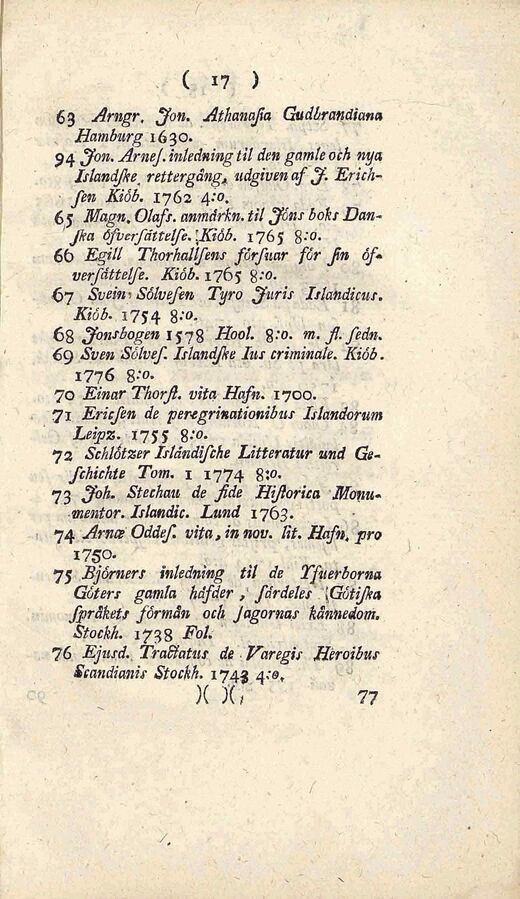 ( 17 )
63 Arngr. Jon. Athanaſia Gudbrandiana
Hamburg 1630.
94 Jon. Arneſ. inledning til den gamle och nya
Islandſke rettergång, udgiven af J. Erich-
ſen Kiób. 1762 4:o.
65 Magn. Olafs. anmärkn. til Jóns boks Dan-
ſka öfverſättelſe. Kiób. 1765 8:o.
66 Egill Thorhallſens förſuar för ſin öf-
verſättelſe. Kiób. 1765 8:o.
67 Svein Sölveſen Tyro Juris Islandicus.
Kiób. 1754 8:o.
68 Jonsbogen 1578 Hool. 8:o. m. fl. ſedn.
69 Sven Sölveſ. Islandſke Ius criminale. Kiób.
1776 8:o.
70 Einar Thorſt. vita Hafn. 1700.
71 Ericſen de peregrinationibus Islandorum
Leipz. 1755 8:o.
72 Schlötzer Isländiſche Litteratur und Ge-
ſchichte Tom. 1 1774 8:o.
73 Joh. Stechau de fide Hiſtorica Monu-
mentor. Islandic. Lund 1763.
74 Arnæ Oddeſ. vita, in nov. lit. Hafn. pro
1750.
75 Björners inledning til de Yfuerborna
Göters gamla häfder, färdeles Götiſka
ſpråkets förmån och Jagornas kännedom.
Stockh. 1738 Fol.
76 Ejusd. Tractatus de Varegis Heroibus
Scandianis Stockh. 1743 4:o.
)( )(,
77